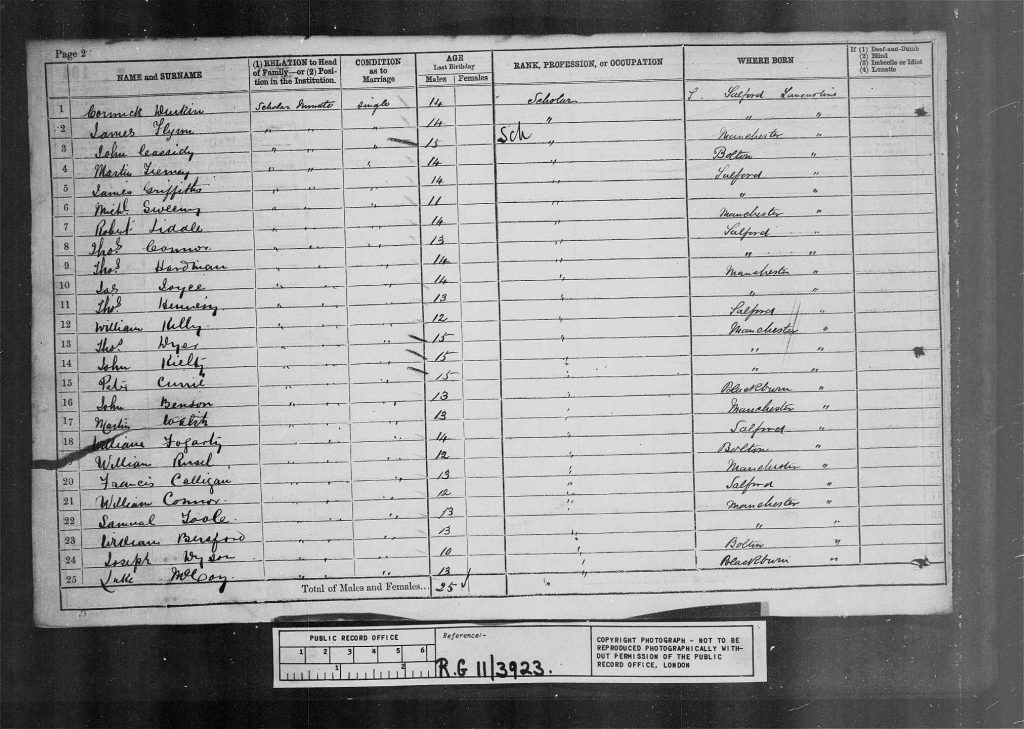 Page 2
NAME and SURNAME
(1) RELATION to Head of Family—or (2) Position in the Institution.
CONDITION as to Marriage
AGE Last Birthday
Males Females
RANK, PROFESSION, or OCCUPATION
WHERE BORN
If (1) Deaf-and-Dumb (2) Blind (3) Imbecile or Idiot (4) Lunatic
1 Cormick Durkin Scholar Inmate single 14 Scholar Salford Lancashire
2 James Flynn " " " 14 " " "
Sch
3 John Cassidy " " " 15 " Manchester "
4 Martin Tierney " " " 14 " Bolton "
5 James Griffiths " " " 14 " Salford "
6 Michl. Sweeny " " " 11 " " "
7 Robert Liddle " " " 14 " Manchester "
8 Thos. Connor " " " 13 " Salford "
9 Thos. Hardman " " " 14 " " "
10 Jas Joyce " " " 14 " Manchester "
11 Thos. " " " 13 " " "
12 William Kelly " " " 12 " Salford "
13 Thos. Dyer " " " 15 " Manchester "
14 John Kielty " " " 15 " " "
15 Peter Currie " " " 15 " " "
16 John Benson " " " 13 " Blackburn "
17 Martin Walsh " " " 13 " Manchester "
18 William Fogarty " " " 14 " Salford "
William " " " 12 " Bolton "
20 Francis Calligan " " " 13 " Manchester "
21 William Connor " " " 12 " Salford "
22 Samual Toole " " " 13 " Manchester "
23 William Beresford " " " 13 " " "
24 Joseph Dyson " " " 10 " Bolton "
25 Luke McCoy " " " 13 " Blackburn "
Total of Males and Females... 25
PUBLIC RECORD OFFICE
1 2 3 4 5 6
1 2
Reference:-
R.G 11/3923.
COPYRIGHT PHOTOGRAPH - NOT TO BE
REPRODUCED PHOTOGRAPHICALLY WITH-
OUT PERMISSION OF THE PUBLIC
RECORD OFFICE, LONDON